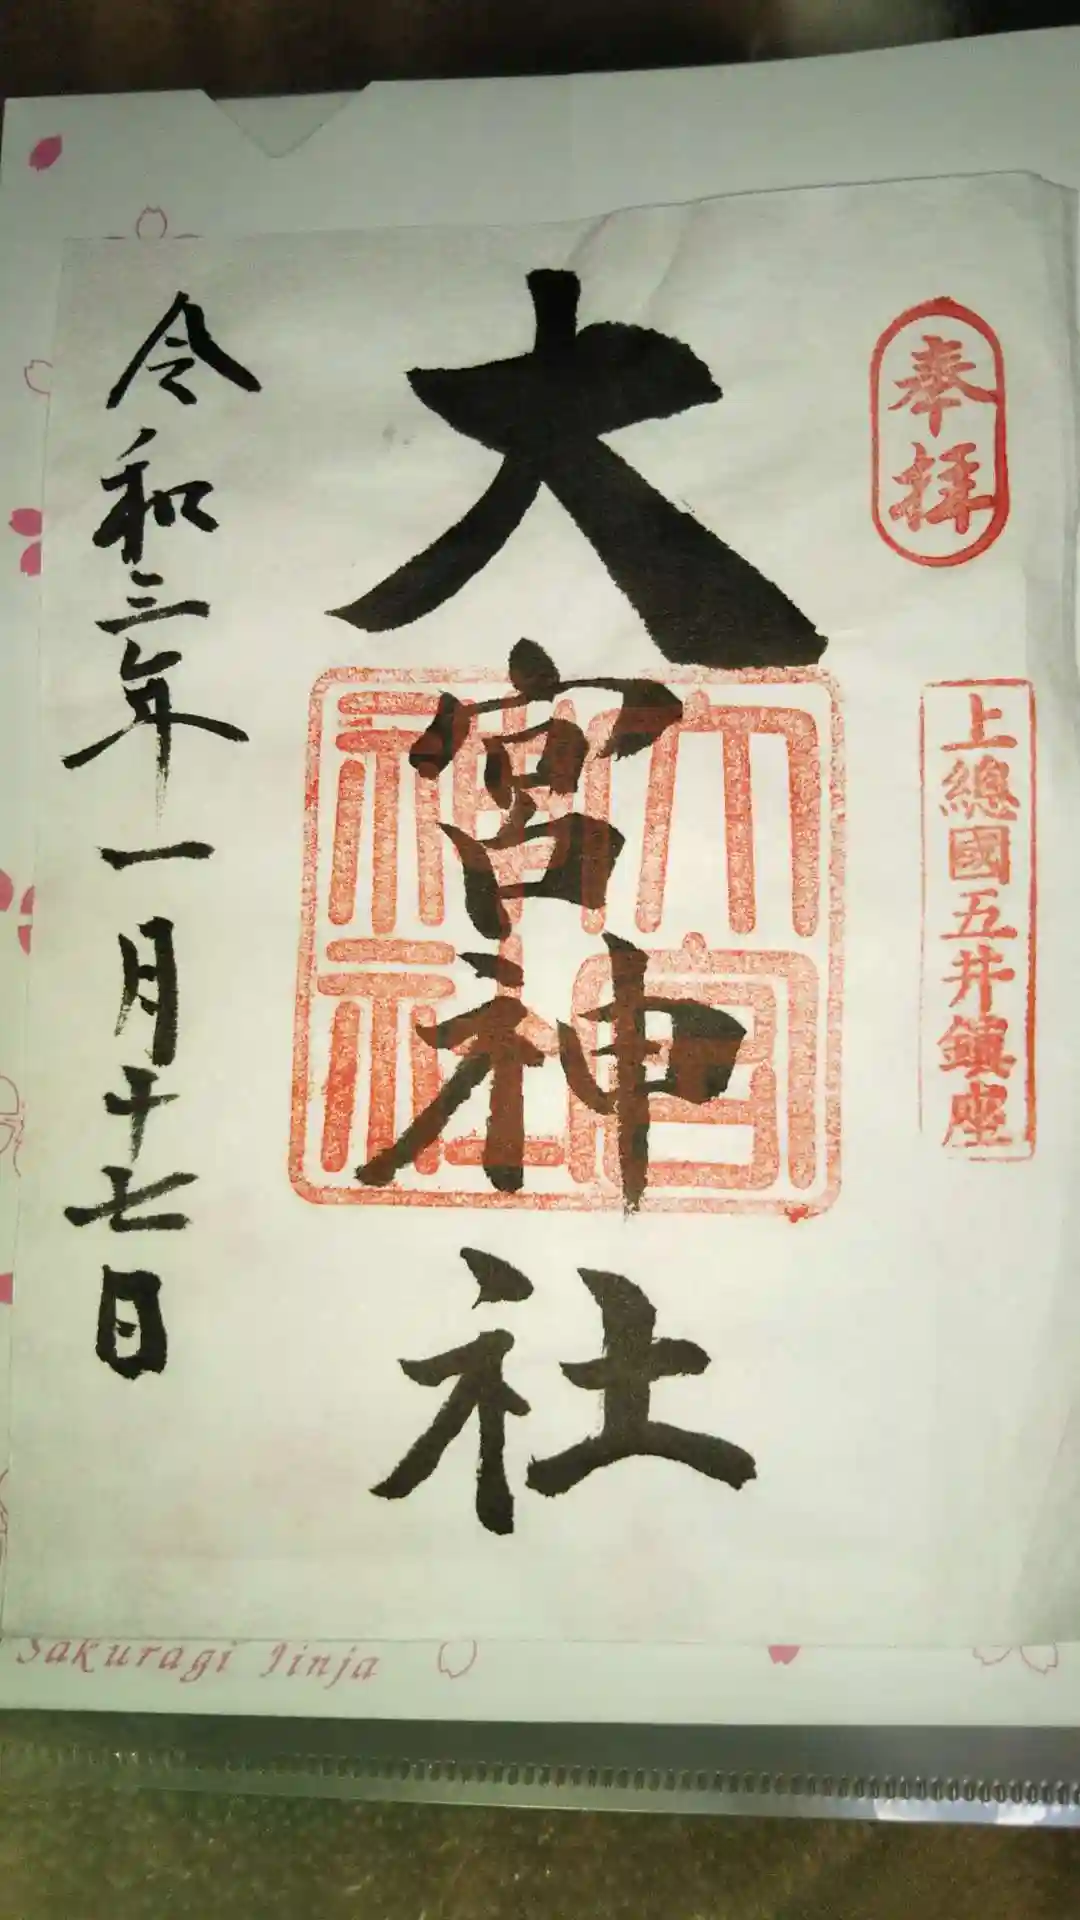 奉拝
上總國五井鎮座
大宮神社
大宮神社
令和三年一月十七日
Sakuragi Jinja